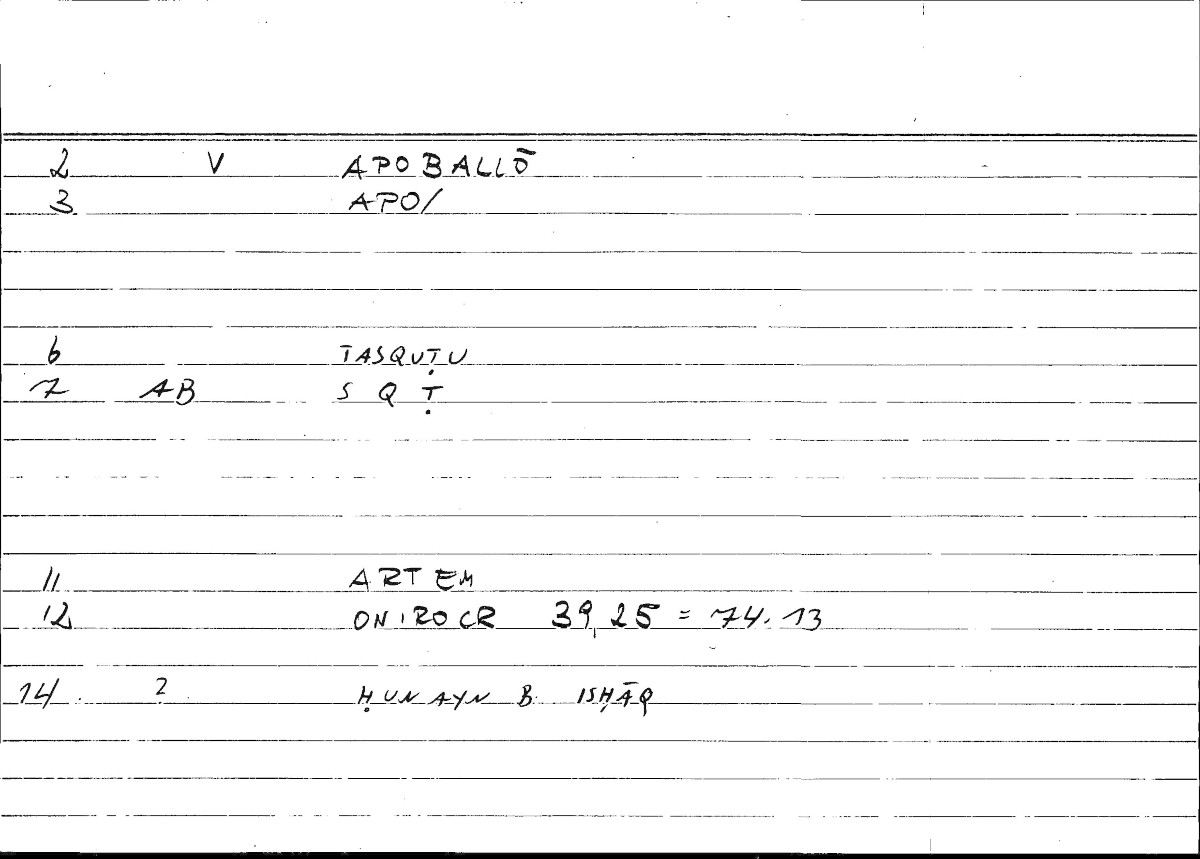 2 V APOBALLŌ
3 APO/
6 TASQUṬU
7 AB S Q Ṭ
11 ARTEM
12 ONIROCR 39,25 = 74.13
14 2 ḤUNAYN B ISḤĀQ